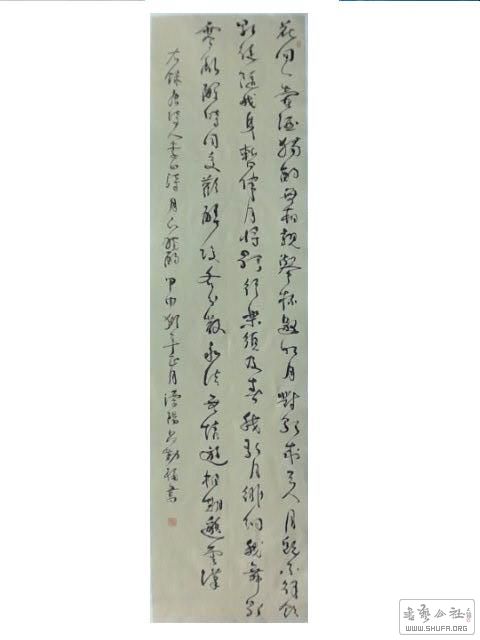 花间一壶酒独酌无相亲举杯邀明月对影成三人月既不解饮
影徒随我身暂伴月将影行乐须及春我歌月徘徊我舞影
零乱醒时同交欢醉后各分散永结无情游相期邈云汉
大唐唐诗人李白诗月下独酌 甲申 年正月 书
书艺公社
WWW.SHUFA.ORG